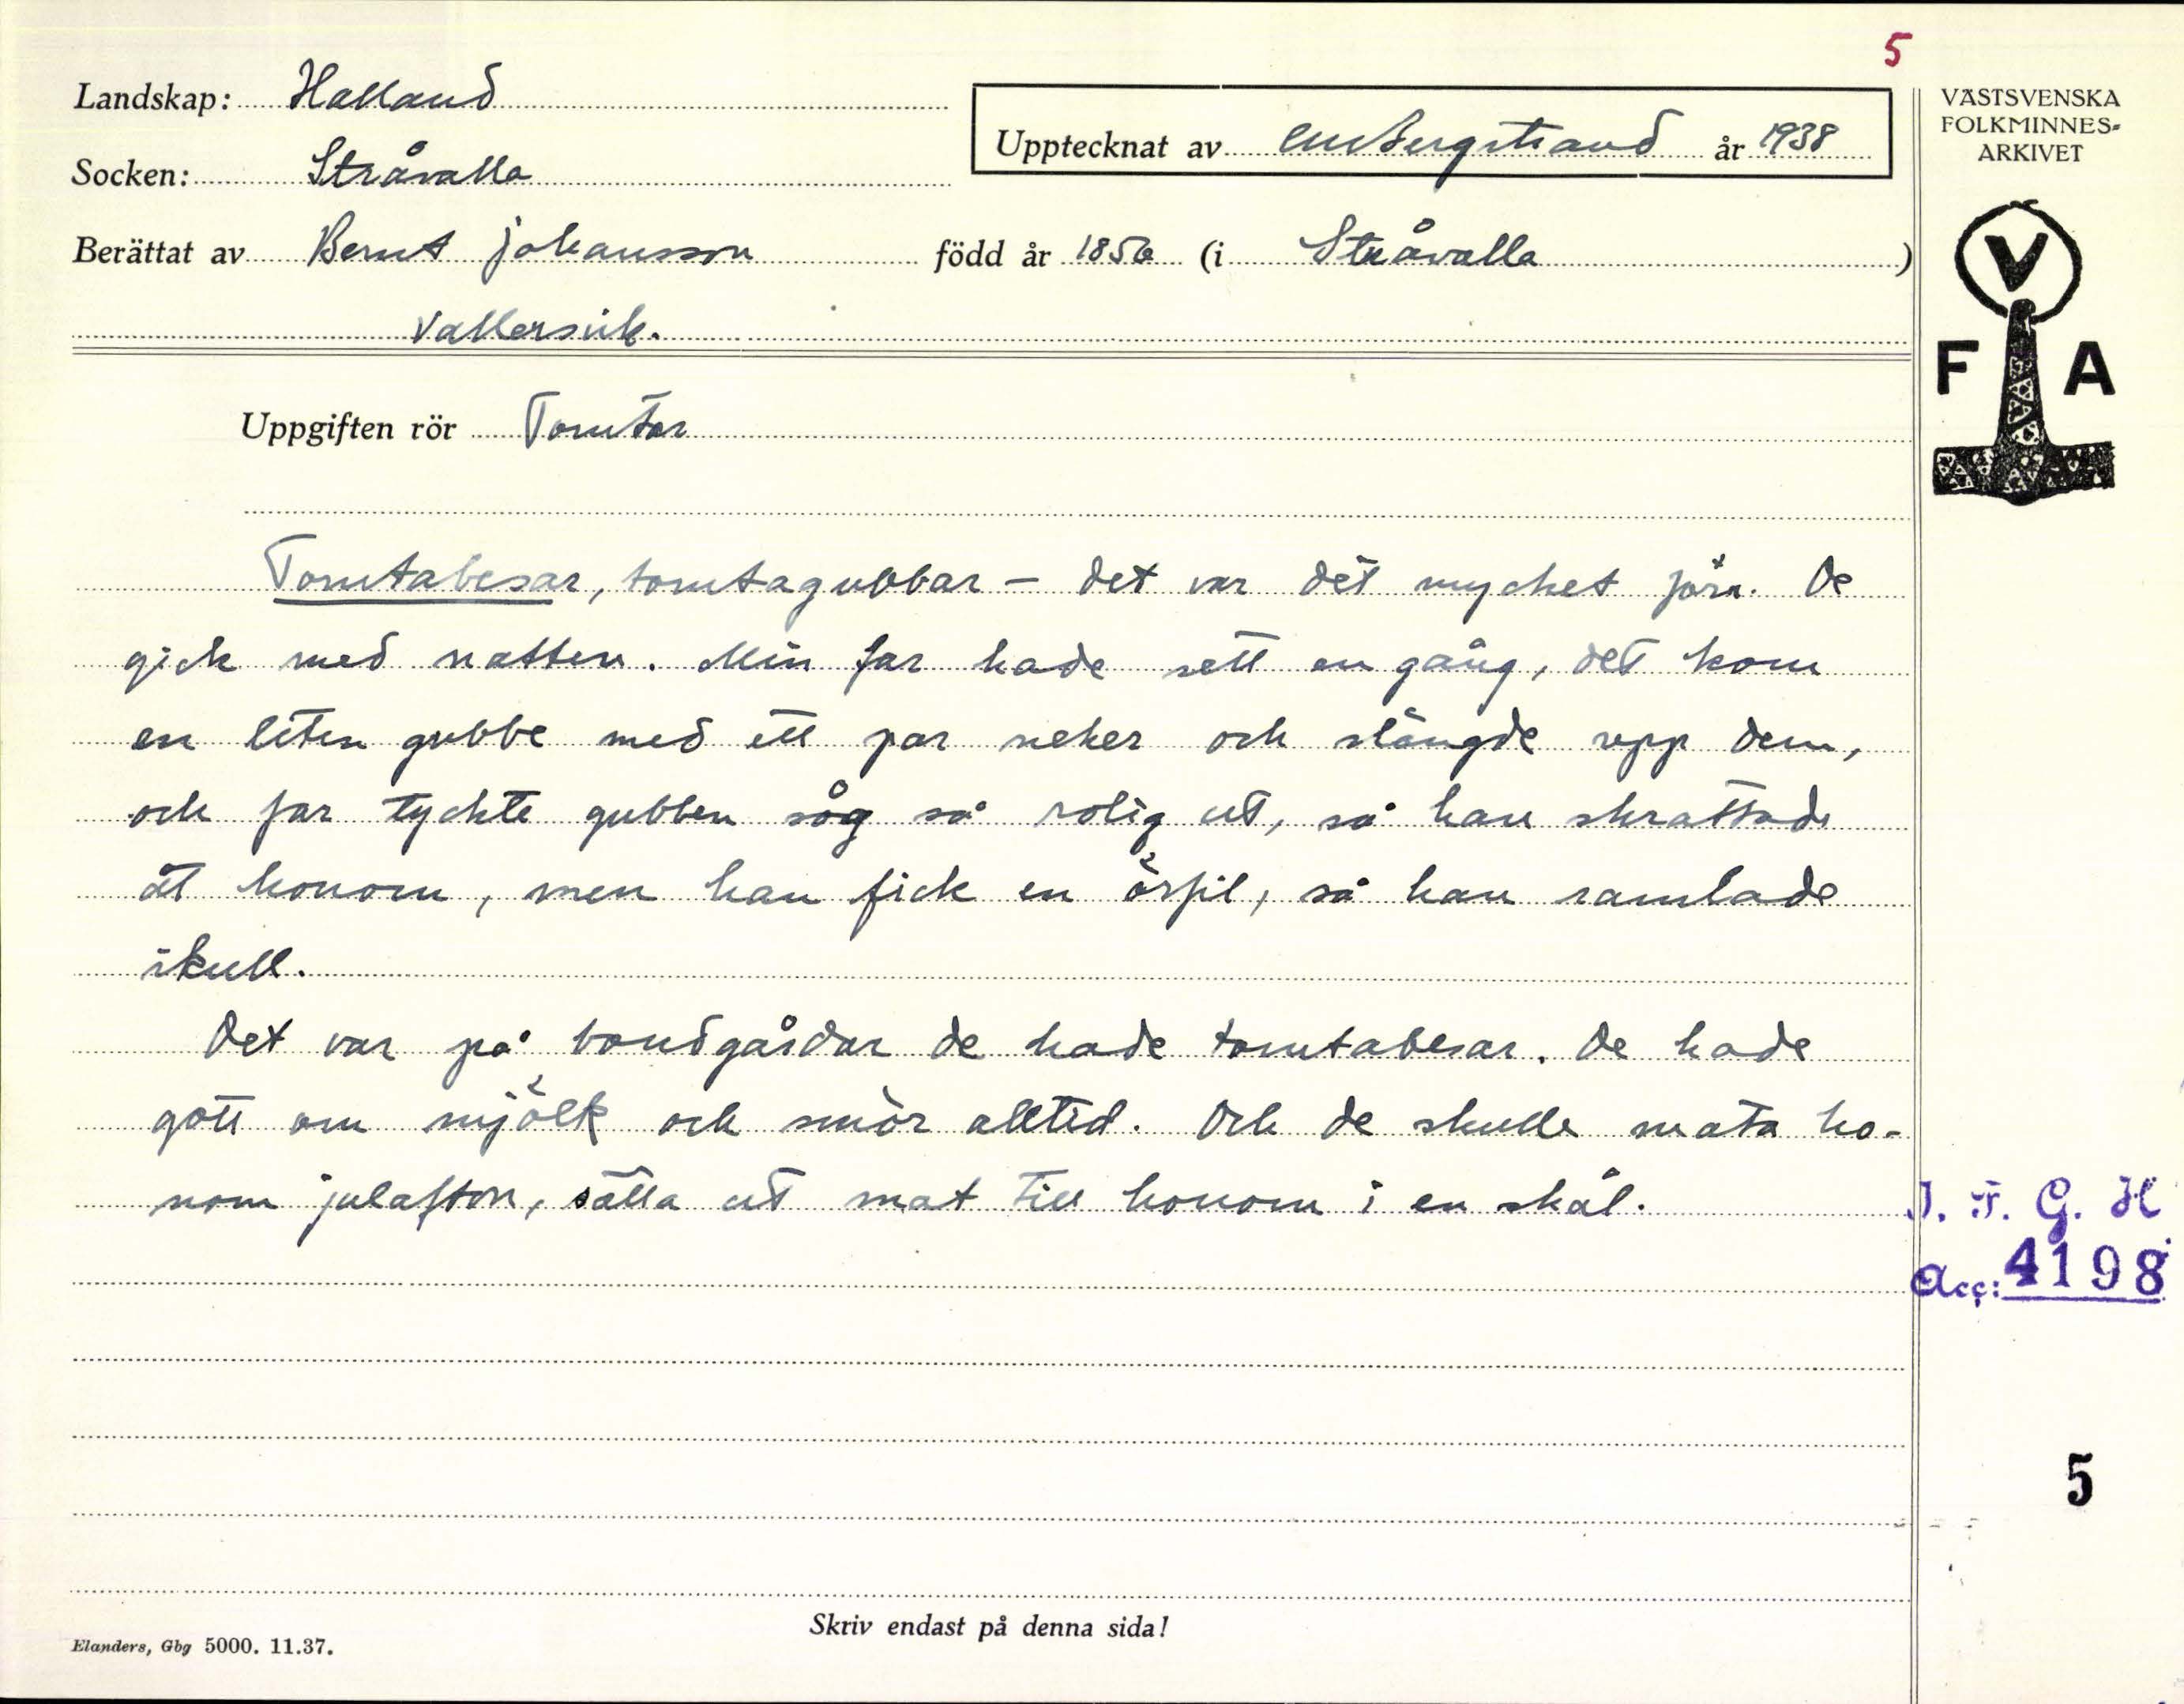 5
Landskap: Halland
VÄSTSVENSKA
FOLKMINNES-
ARKIVET
Upptecknat av CM Bergstrand år 1938
Socken: Stråvalla
Berättat av Bernt Johansson född år 1856 (i Stråvalla)
Vallersvik.
V
F A
Uppgiften rör Tomtar
Tomtabesar, tomtagubbar – det var det mycket förr. De
gick med natten. Min far hade sett en gång, det kom
en liten gubbe med ett par neker och slängde upp dem,
och far tyckte gubben såg så rolig ut, så han skrattade
åt honom, men han fick en örfil, så han ramlade
ikull.
Det var på bondgårdar de hade tomtabesar. De hade
gott om mjölk och smör alltid. Och de skulle mata ho-
nom julafton, sätta ut mat till honom i en skål.
I. F. G. H.
Acc: 4198
5
Skriv endast på denna sida!
Elanders, Gbg 5000. 11.37.